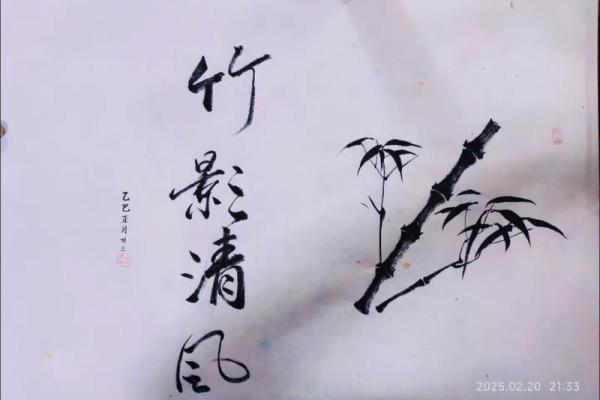 竹影清风
乙巳正月廿三
2025.02.20 21:33